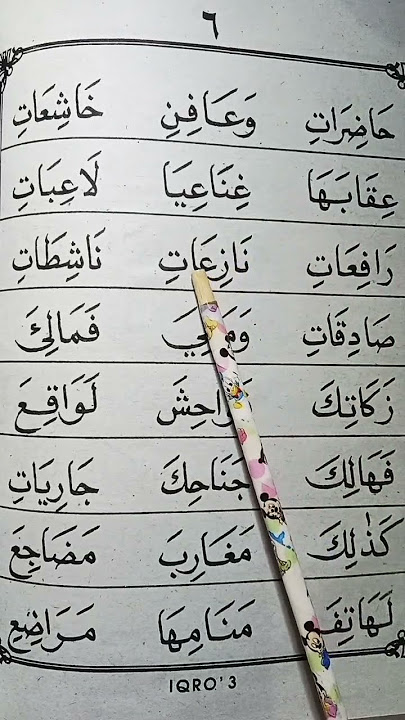 ٦
حَاضِرَاتِ وَعَافِنِ خَاشِعَاتِ
عِقَابَهَا غِنَاعِيَا لَاعِبَاتِ
رَافِعَاتِ نَازِعَاتِ نَاشِطَاتِ
صَادِقَاتِ فَمَالِئَ
زَكَاتِكَ لَوَاقِعَ
فَهَالِكَ جَنَاحِكَ جَارِيَاتِ
كَذٰلِكَ مَغَارِبَ مَضَاجِعَ
لَهَاتِفَ مَنَامِهَا مَرَاضِعِ
IQRO' 3